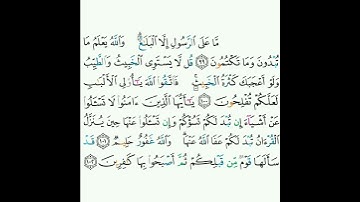 مَّا عَلَى ٱلرَّسُولِ إِلَّا ٱلْبَلَٰغُ ۗ وَٱللَّهُ يَعْلَمُ مَا
تُبْدُونَ وَمَا تَكْتُمُونَ ٩٩ قُل لَّا يَسْتَوِى ٱلْخَبِيثُ وَٱلطَّيِّبُ
وَلَوْ أَعْجَبَكَ كَثْرَةُ ٱلْخَبِيثِ ۚ فَٱتَّقُوا۟ ٱللَّهَ يَٰٓأُو۟لِى ٱلْأَلْبَٰبِ
لَعَلَّكُمْ تُفْلِحُونَ ١٠٠ يَٰٓأَيُّهَا ٱلَّذِينَ ءَامَنُوا۟ لَا تَسْـَٔلُوا۟
عَنْ أَشْيَآءَ إِن تُبْدَ لَكُمْ تَسُؤْكُمْ وَإِن تَسْـَٔلُوا۟ عَنْهَا حِينَ يُنَزَّلُ
ٱلْقُرْءَانُ تُبْدَ لَكُمْ عَفَا ٱللَّهُ عَنْهَا ۗ وَٱللَّهُ غَفُورٌ حَلِيمٌ ١٠١ قَدْ
سَأَلَهَا قَوْمٌ مِّن قَبْلِكُمْ ثُمَّ أَصْبَحُوا۟ بِهَا كَٰفِرِينَ ١٠٢